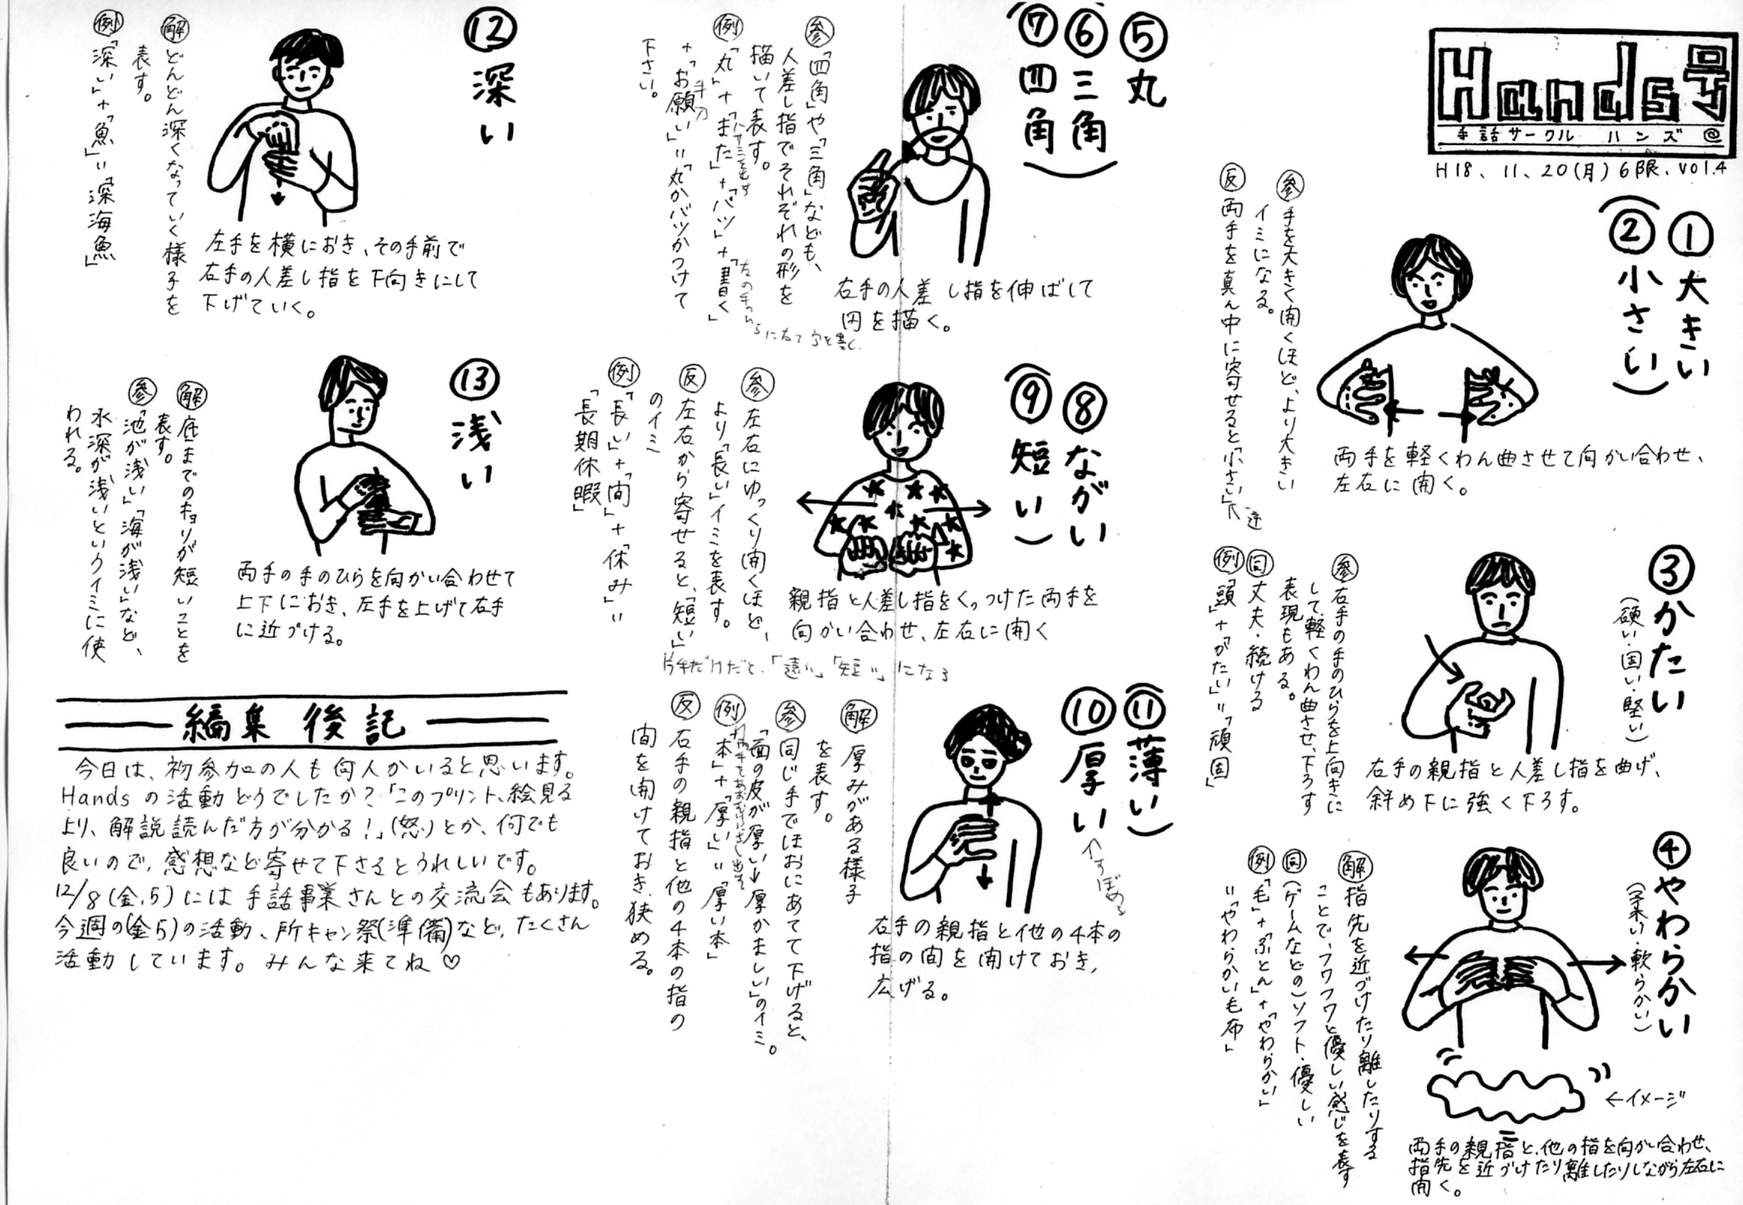 Hands号
手話サークル ハンズ@
H18、11、20(月)6限、vol.4
①大きい
(②小さい)
両手を軽くわん曲させて向かい合わせ、
左右に開く。
参 手を大きく開くほど、より大きい
イミになる。
反 両手を真ん中に寄せると「小さい」
③かたい
(硬い・固い・堅い)
右手の親指と人差し指を曲げ、
斜め下に強く下ろす。
参 右手の手のひらを上向きに
して軽くわん曲させ、下ろす
表現もある。
同 丈夫・続ける
例 「頭」+「かたい」=「頑固」
④やわらかい
(柔い・軟らかい)
←イメージ
両手の親指と、他の指を向かい合わせ、
指先を近づけたり離したりしながら左右に
開く。
解 指先を近づけたり離したりする
ことで、フワフワと優しい感じを表す
同 (ゲームなどの)ソフト・優しい
例 「毛」+「ふとん」+「やわらかい」
=「やわらかい毛布」
⑤丸
(⑥三角
⑦四角)
右手の人差し指を伸ばして
円を描く。
参 「四角」や「三角」なども、
人差し指でそれぞれの形を
描いて表す。
例 「丸」+「また」+「バツ」+「書く」
+「お願い」=「丸かバツかつけて
下さい。
⑧ながい
(⑨短い)
親指と人差し指をくっつけた両手を
向かい合わせ、左右に開く
片手だけだと、「遠い」「短い」になる
参 左右にゆっくり開くほど、
より「長い」イミを表す。
反 左右から寄せると、「短い」
のイミ
例 「長い」+「間」+「休み」=
「長期休暇」
(⑪薄い)
⑩厚い
↑すぼめる
右手の親指と他の4本の
指の間を開けておき、
広げる。
解 厚みがある様子
を表す。
参 同じ手でほおにあてて下げると、
「面の皮が厚い→厚かましい」のイミ。
例 「本」+「厚い」=「厚い本」
反 右手の親指と他の4本の指の
間を開けておき、狭める。
⑫深い
左手を横におき、その手前で
右手の人差し指を下向きにして
下げていく。
解 どんどん深くなっていく様子を
表す。
例 「深い」+「魚」=「深海魚」
⑬浅い
両手の手のひらを向かい合わせて
上下におき、左手を上げて右手
に近づける。
解 底までのキョリが短いことを
表す。
参 「池が浅い」「海が浅い」など、
水深が浅いというイミに使
われる。
編集後記
今日は、初参加の人も何人かいると思います。
Handsの活動どうでしたか?「このプリント、絵見る
より、解説読んだ方が分かる!」(怒)とか、何でも
良いので、感想など寄せて下さるとうれしいです。
12/8(金.5)には手話事業さんとの交流会もあります。
今週の(金5)の活動、所キャン祭(準備)など、たくさん
活動しています。みんな来てね♡